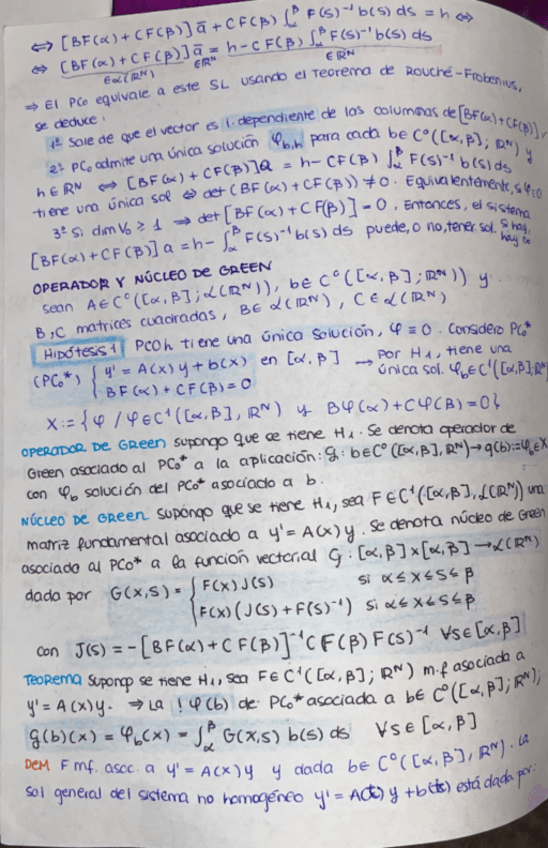 ⇔ [BF(α) + CF(β)] ā + CF(β) ∫_α^β F(s)⁻¹ b(s) ds = h ⇔
⇔ [BF(α) + CF(β)] ā = h - CF(β) ∫_α^β F(s)⁻¹ b(s) ds
∈ L(ℝᴺ) ∈ℝᴺ ∈ℝᴺ
⇒ El PCo equivale a este SL usando el Teorema de Rouché-Frobenius,
se deduce:
1º Sale de que el vector es l. dependiente de las columnas de [BF(α) + CF(β)],
2º PCo admite una única solución φ_b,h para cada b∈ C⁰([α,β]; ℝᴺ) y
h∈ℝᴺ ⇔ [BF(α) + CF(β)]a = h - CF(β) ∫_α^β F(s)⁻¹ b(s) ds
tiene una única sol ⇔ det (BF(α) + CF(β)) ≠ 0. Equivalentemente, si φ≡0
3º Si dim V₀ ≥ 1 → det [BF(α) + CF(β)] = 0. Entonces, el sistema
[BF(α) + CF(β)] a = h - ∫_α^β F(s)⁻¹ b(s) ds puede, o no, tener sol. Si hay, hay ∞
OPERADOR Y NÚCLEO DE GREEN
Sean A∈C⁰([α,β]; L(ℝᴺ)), b∈ C⁰([α,β]; ℝᴺ)) y
B, C matrices cuadradas, B∈ L(ℝᴺ), C∈ L(ℝᴺ)
Hipótesis 1 PCOh tiene una única solución, φ ≡ 0. Considero PCo*
(PCo*) { y' = A(x)y + b(x) en [α,β] → Por H₁, tiene una
BF(α) + CF(β) = 0 única sol. φ_b∈C¹([α,β];ℝᴺ)
X := {φ / φ∈C¹([α,β], ℝᴺ) y Bφ(α) + Cφ(β) = 0}
OPERADOR DE GREEN Supongo que se tiene H₁. Se denota operador de
Green asociado al PCo* a la aplicación: g: b∈C⁰([α,β], ℝᴺ) → g(b) := φ_b∈X
con φ_b solución del PCo* asociado a b.
NÚCLEO DE GREEN Supongo que se tiene H₁, sea F∈C¹([α,β], L(ℝᴺ)) una
matriz fundamental asociado a y' = A(x)y. Se denota núcleo de Green
asociado al PCo* a la función vectorial G: [α,β]×[α,β] → L(ℝᴺ)
dada por G(x,s) = { F(x) J(s) si α ≤ x ≤ s ≤ β
F(x) (J(s) + F(s)⁻¹) si α ≤ x ≤ s ≤ β
con J(s) = -[BF(α) + CF(β)]⁻¹ CF(β) F(s)⁻¹ ∀s∈[α,β]
TEOREMA Supongo se tiene H₁, sea F∈ C¹([α,β]; ℝᴺ) m.f asociada a
y' = A(x)y. ⇒ La ! φ(b) de PCo* asociada a b∈ C⁰([α,β]; ℝᴺ);
g(b)(x) = φ_b(x) = ∫_α^β G(x,s) b(s) ds ∀s∈[α,β]
DEM F mf. asoc. a y' = A(x)y y dada b∈ C⁰([α,β], ℝᴺ). La
sol general del sistema no homogéneo y' = A(x)y + b(x) está dada por: